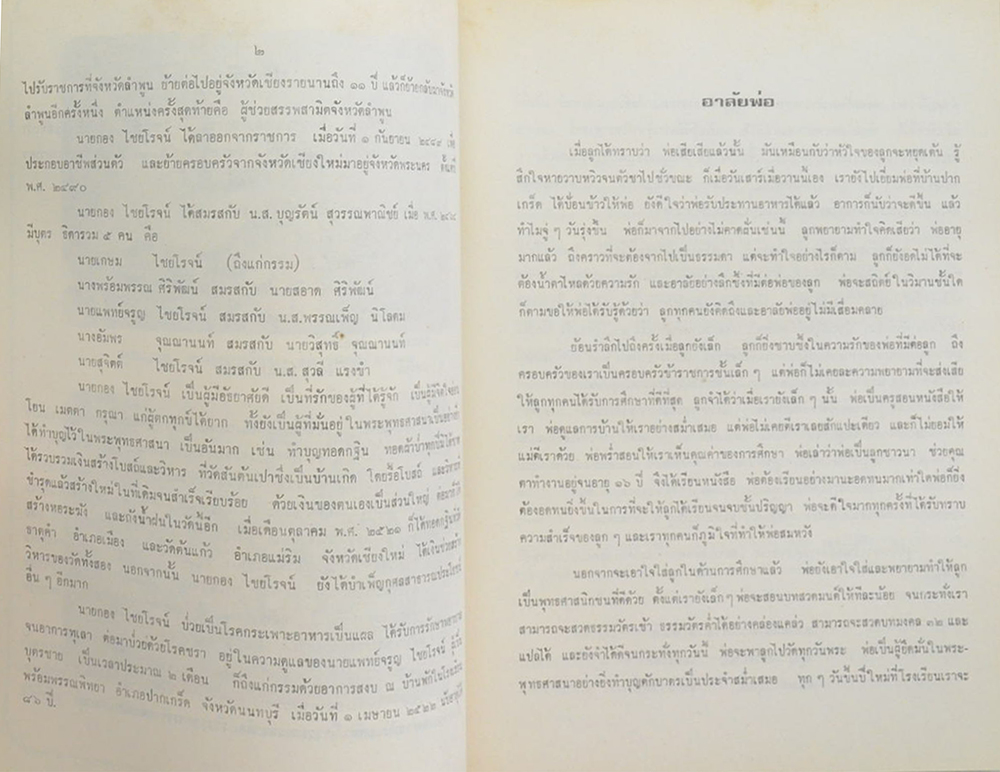 ๒
ไปรับราชการที่จังหวัดลำพูน ย้ายต่อไปอยู่จังหวัดเชียงรายนานถึง ๑๑ ปี แล้วก็ย้ายกลับมาจังหวัด
ลำพูนอีกครั้งหนึ่ง ตำแหน่งครั้งสุดท้ายคือ ผู้ช่วยสรรพสามิตจังหวัดลำพูน
นายกอง ไชยโรจน์ ได้ลาออกจากราชการ เมื่อวันที่ ๑ กันยายน ๒๔๘๙
ประกอบอาชีพส่วนตัว และย้ายครอบครัวจากจังหวัดเชียงใหม่มาอยู่จังหวัดพระนคร ตั้งแต่
พ.ศ. ๒๔๙๐
นายกอง ไชยโรจน์ ได้สมรสกับ น.ส. บุญรัตน์ สุวรรณพาณิชย์ เมื่อ พ.ศ.
มีบุตร ธิดารวม ๕ คน คือ
นายเกษม ไชยโรจน์ (ถึงแก่กรรม)
นางพร้อมพรรณ ศิริพัฒน์ สมรสกับ นายสอาด ศิริพัฒน์
นายแพทย์จรูญ ไชยโรจน์ สมรสกับ น.ส.พรรณเพ็ญ นิโลดม
นางอัมพร จุณณานนท์ สมรสกับ นายวิสุทธิ์ จุณณานนท์
นายสุจิตต์ ไชยโรจน์ สมรสกับ น.ส. สุวลี แรงขำ
นายกอง ไชยโรจน์ เป็นผู้มีอัธยาศัยดี เป็นที่รักของผู้ที่ได้รู้จัก เป็นผู้มีจิตใจ
โยน เมตตา กรุณา แก่ผู้ตกทุกข์ได้ยาก ทั้งยังเป็นผู้ที่มั่นอยู่ในพระพุทธศาสนาเป็นอย่าง
ได้ทำบุญไว้ในพระพุทธศาสนา เป็นอันมาก เช่น ทำบุญทอดกฐิน ทอดผ้าป่าทุกปี
ได้รวบรวมเงินสร้างโบสถ์และวิหาร ที่วัดสันต้นเปาซึ่งเป็นบ้านเกิด โดยรื้อโบสถ์ และวิหาร
ชำรุดแล้วสร้างใหม่ในที่เดิมจนสำเร็จเรียบร้อย ด้วยเงินของตนเองเป็นส่วนใหญ่
สร้างหอระฆัง และถังน้ำฝนในวัดนี้อีก เมื่อเดือนตุลาคม พ.ศ. ๒๕๒๑ ก็ได้ทอดกฐิน
ธาตุคำ อำเภอเมือง และวัดต้นแก้ว อำเภอแม่ริม จังหวัดเชียงใหม่ ได้เงินช่วย
วิหารของวัดทั้งสอง นอกจากนั้น นายกอง ไชยโรจน์ ยังได้บำเพ็ญกุศลสาธารณประโยชน์
อื่น ๆ อีกมาก
นายกอง ไชยโรจน์ ป่วยเป็นโรคกระเพาะอาหารเป็นแผล ได้รับการรักษา
จนอาการทุเลา ต่อมาป่วยด้วยโรคชรา อยู่ในความดูแลของนายแพทย์จรูญ ไชยโรจน์ ผู้เป็น
บุตรชาย เป็นเวลาประมาณ ๒ เดือน ก็ถึงแก่กรรมด้วยอาการสงบ ณ บ้านพักในโรงเรียน
พร้อมพรรณพิทยา อำเภอปากเกร็ด จังหวัดนนทบุรี เมื่อวันที่ ๑ เมษายน ๒๕๒๒
๘๖ ปี.
อาลัยพ่อ
เมื่อลูกได้ทราบว่า พ่อเสียเสียแล้วนั้น มันเหมือนกับว่าหัวใจของลูกจะหยุดเต้น รู้
สึกใจหายวาบหวิวจนตัวชาไปชั่วขณะ ก็เมื่อวันเสาร์เมื่อวานนี้เอง เรายังไปเยี่ยมพ่อที่บ้านปาก
เกร็ด ได้ป้อนข้าวให้พ่อ ยังดีใจว่าพ่อรับประทานอาหารได้แล้ว อาการก็นับว่าจะดีขึ้น แล้ว
ทำไมจู่ ๆ วันรุ่งขึ้น พ่อก็มาจากไปอย่างไม่คาดฝันเช่นนี้ ลูกพยายามทำใจคิดเสียว่า พ่ออายุ
มากแล้ว ถึงคราวที่จะต้องจากไปเป็นธรรมดา แต่จะทำใจอย่างไรก็ตาม ลูกก็ยังอดไม่ได้ที่จะ
ต้องน้ำตาไหลด้วยความรัก และอาลัยอย่างลึกซึ้งที่มีต่อพ่อของลูก พ่อจะสถิตย์ในวิมานชั้นใด
ก็ตามขอให้พ่อได้รับรู้ด้วยว่า ลูกทุกคนยังคิดถึงและอาลัยพ่ออยู่ไม่มีเสื่อมคลาย
ย้อนรำลึกไปถึงครั้งเมื่อลูกยังเล็ก ลูกก็ยิ่งซาบซึ้งในความรักของพ่อที่มีต่อลูก ถึง
ครอบครัวของเราเป็นครอบครัวข้าราชการชั้นเล็ก ๆ แต่พ่อก็ไม่เคยละความพยายามที่จะส่งเสีย
ให้ลูกทุกคนได้รับการศึกษาที่ดีที่สุด ลูกจำได้ว่าเมื่อเรายังเล็ก ๆ นั้น พ่อเป็นครูสอนหนังสือให้
เรา พ่อดูแลการบ้านให้เราอย่างสม่ำเสมอ แต่พ่อไม่เคยตีเราเลยสักแปะเดียว และก็ไม่ยอมให้
แม่ตีเราด้วย พ่อพร่ำสอนให้เราเห็นคุณค่าของการศึกษา พ่อเล่าว่าพ่อเป็นลูกชาวนา ช่วยคุณ
ตาทำงานอยู่จนอายุ ๑๖ ปี จึงได้เรียนหนังสือ พ่อต้องเรียนอย่างมานะอดทนมากเท่าใดพ่อก็ยิ่ง
ต้องอดทนยิ่งขึ้นในการที่จะให้ลูกได้เรียนจนจบขั้นปริญญา พ่อจะดีใจมากทุกครั้งที่ได้รับทราบ
ความสำเร็จของลูก ๆ และเราทุกคนก็ภูมิใจที่ทำให้พ่อสมหวัง
นอกจากจะเอาใจใส่ลูกในด้านการศึกษาแล้ว พ่อยังเอาใจใส่และพยายามทำให้ลูก
เป็นพุทธศาสนิกชนที่ดีด้วย ตั้งแต่เรายังเล็ก ๆ พ่อจะสอนบทสวดมนต์ให้ทีละน้อย จนกระทั่งเรา
สามารถจะสวดธรรมวัตรเช้า ธรรมวัตรค่ำได้อย่างคล่องแคล่ว สามารถจะสวดบทมงคล ๓๒ และ
แปลได้ และยังจำได้ดีจนกระทั่งทุกวันนี้ พ่อจะพาลูกไปวัดทุกวันพระ พ่อเป็นผู้ยึดมั่นในพระ-
พุทธศาสนาอย่างยิ่งทำบุญตักบาตรเป็นประจำสม่ำเสมอ ทุก ๆ วันขึ้นปีใหม่ที่โรงเรียนเราจะ